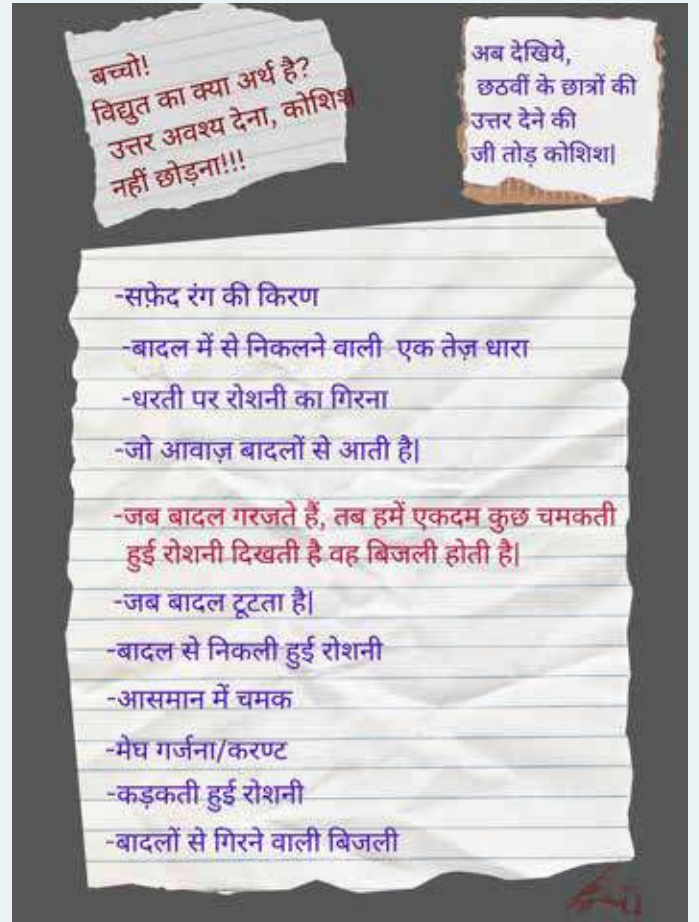 बच्चो!
विद्युत का क्या अर्थ है?
उत्तर अवश्य देना, कोशिश
नहीं छोड़ना!!!
अब देखिये,
छठवीं के छात्रों की
उत्तर देने की
जी तोड़ कोशिश|
-सफ़ेद रंग की किरण
-बादल में से निकलने वाली एक तेज़ धारा
-धरती पर रोशनी का गिरना
-जो आवाज़ बादलों से आती है|
-जब बादल गरजते हैं, तब हमें एकदम कुछ चमकती
हुई रोशनी दिखती है वह बिजली होती है|
-जब बादल टूटता है|
-बादल से निकली हुई रोशनी
-आसमान में चमक
-मेघ गर्जना/करण्ट
-कड़कती हुई रोशनी
-बादलों से गिरने वाली बिजली